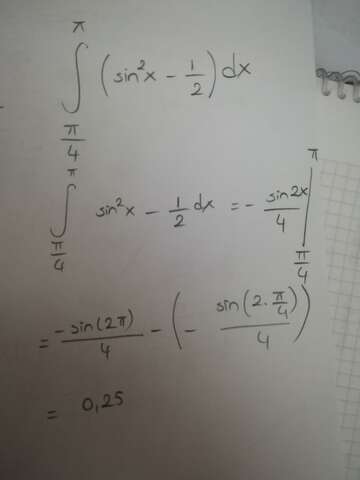 ∫_{π/4}^{π} (sin²x - 1/2) dx
∫_{π/4}^{π} sin²x - 1/2 dx = - sin2x/4 |_{π/4}^{π}
= -sin(2π)/4 - (- sin(2·π/4)/4)
= 0,25